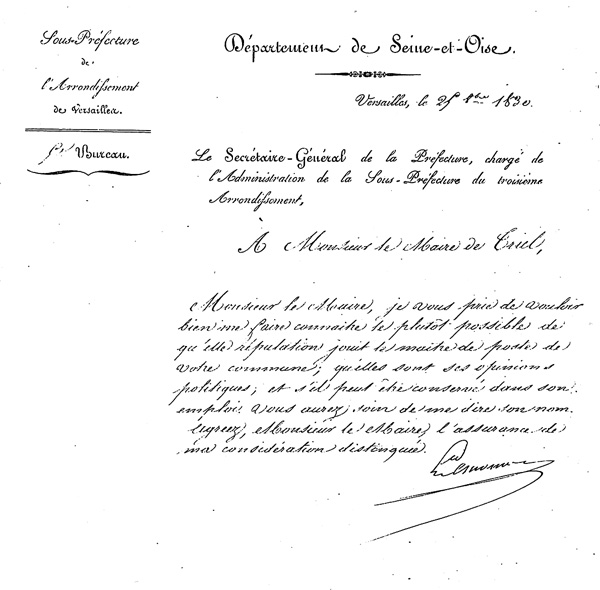 Sous-Préfecture
de
l'Arrondissement
de Versailles.
Bureau.
Département de Seine-et-Oise.
Versailles, le 25 8bre 1830.
Le Secrétaire-Général de la Préfecture, chargé de
l'Administration de la Sous-Préfecture du troisième
Arrondissement,
A Monsieur le Maire de Triel,
Monsieur le Maire, je vous prie de vouloir
bien me faire connaitre le plutôt possible de
qu'elle réputation jouit le maitre de poste de
votre commune; qu'elles sont ses opinions
politiques; et s'il peut être conservé dans son
emploi. Vous aurez soin de me dire son nom.
Agréez, Monsieur le Maire, l'assurance de
ma considération distinguée.